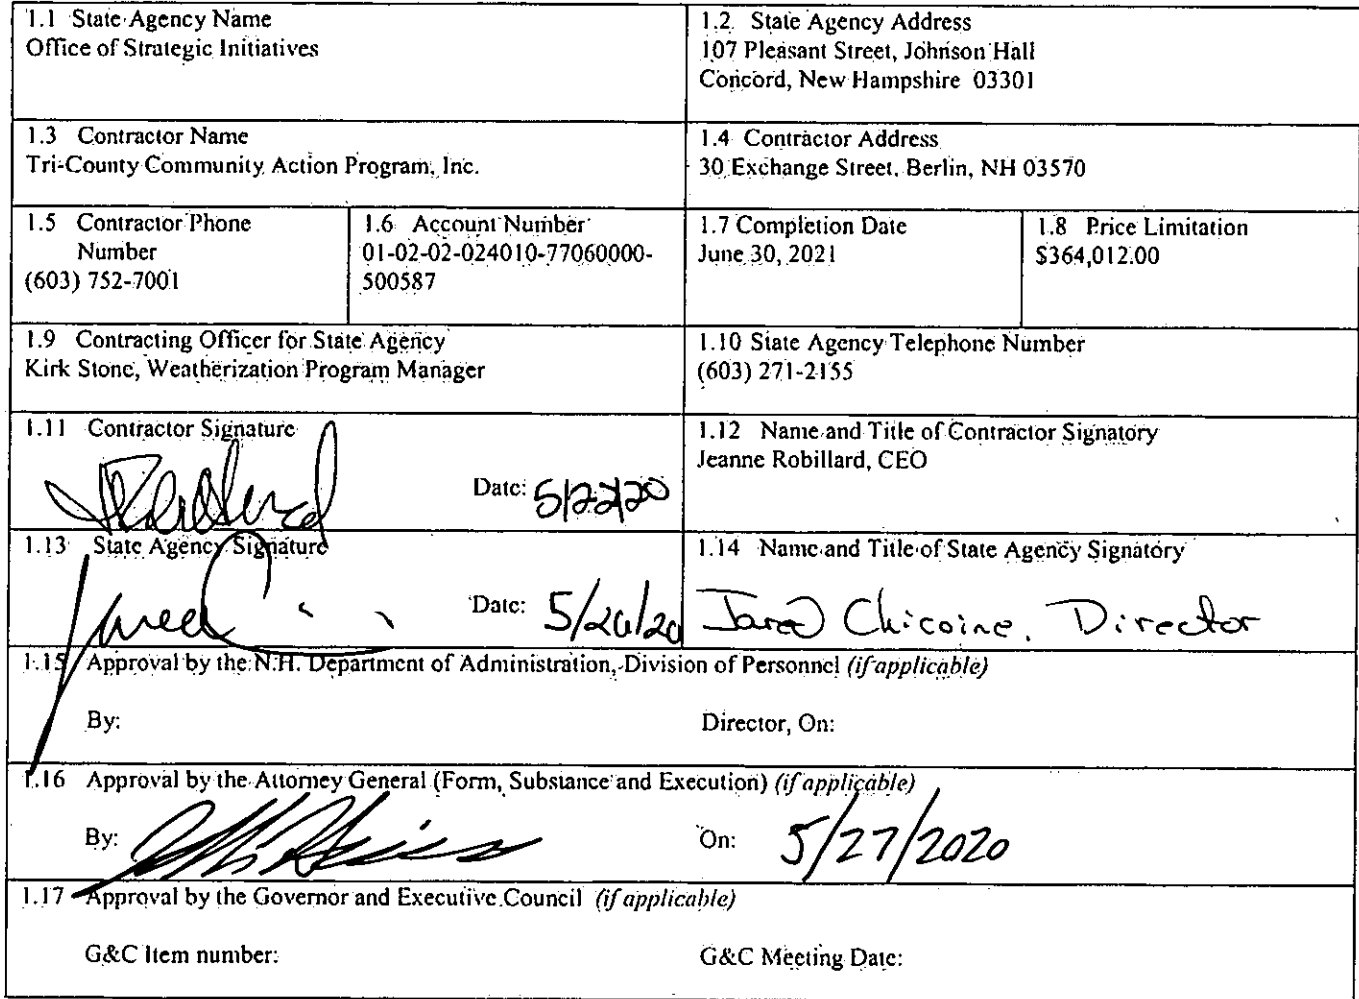 1.1 State Agency Name
Office of Strategic Initiatives
1.2. State Agency Address
107 Pleasant Street, Johnson Hall
Concord, New Hampshire 03301
1.3 Contractor Name
Tri-County Community Action Program, Inc.
1.4 Contractor Address
30 Exchange Street, Berlin, NH 03570
1.5 Contractor Phone
Number
(603) 752-7001
1.6 Account Number
01-02-02-024010-77060000-
500587
1.7 Completion Date
June 30, 2021
1.8 Price Limitation
$364,012.00
1.9 Contracting Officer for State Agency
Kirk Stone, Weatherization Program Manager
1.10 State Agency Telephone Number
(603) 271-2155
1.11 Contractor Signature
Date: 5/22/20
1.12 Name and Title of Contractor Signatory
Jeanne Robillard, CEO
1.13 State Agency Signature
Jared
Date: 5/26/20
1.14 Name and Title of State Agency Signatory
Jared Chicoine, Director
1.15 Approval by the N.H. Department of Administration, Division of Personnel (if applicable)
By:
Director, On:
1.16 Approval by the Attorney General (Form, Substance and Execution) (if applicable)
By:
On: 5/27/2020
1.17 Approval by the Governor and Executive Council (if applicable)
G&C Item number:
G&C Meeting Date: